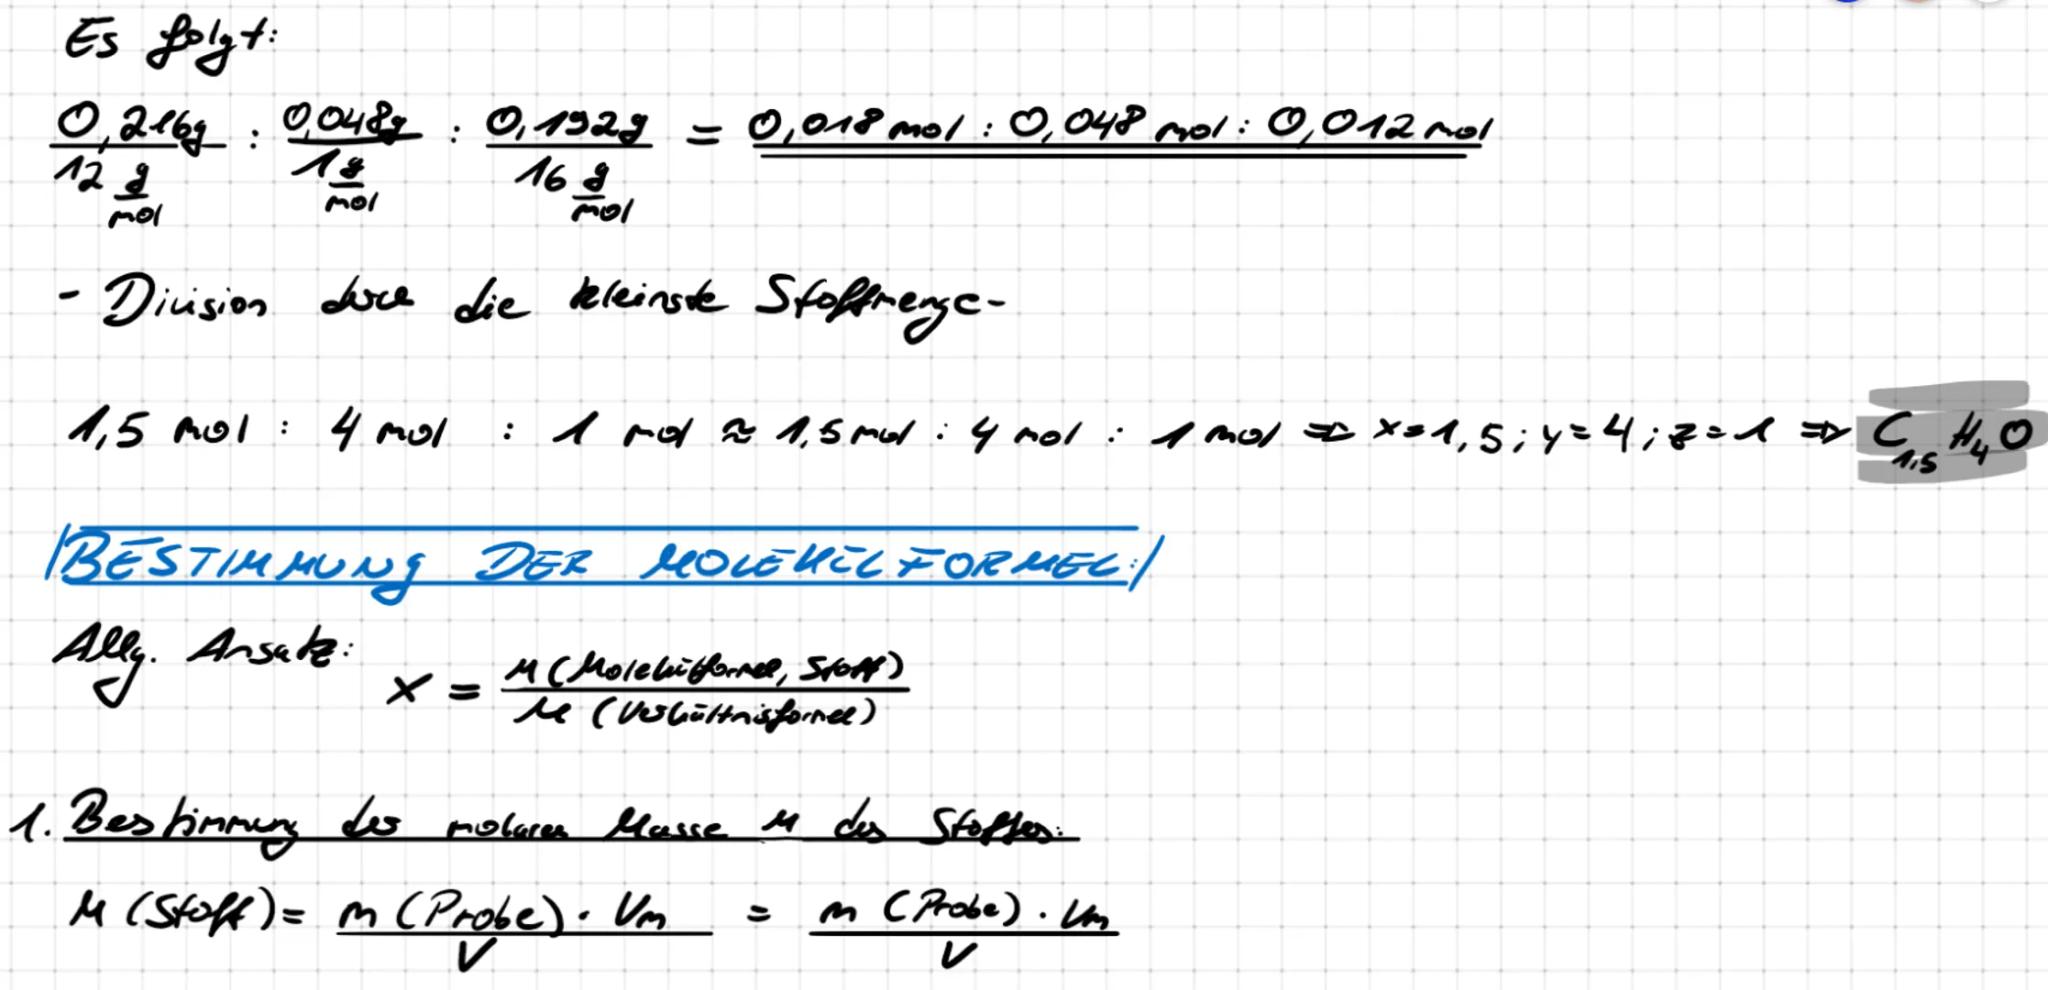 Es folgt:
0,216g / 12 g/mol : 0,048g / 1 g/mol : 0,192g / 16 g/mol = 0,018 mol : 0,048 mol : 0,012 mol
- Division durch die kleinste Stoffmenge -
1,5 mol : 4 mol : 1 mol ≈ 1,5 mol : 4 mol : 1 mol => x=1,5; y=4; z=1 => C1,5 H4 O
/BESTIMMUNG DER MOLEKÜLFORMEL:/
Allg. Ansatz:
x = M (Molekülformel, Stoff) / M (Verhältnisformel)
1. Bestimmung der molaren Masse M des Stoffes:
M (Stoff) = m (Probe) · Vm / V = m (Probe) · Vm / V